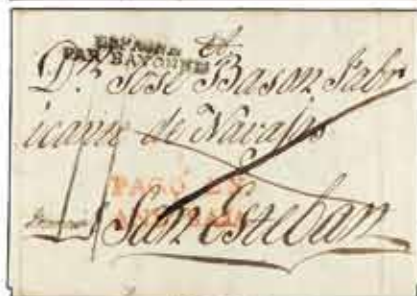 ESPAGNE
PAR BAYONNE
Dn. José Bason Fabr
icante de Navajas
PAGO EN
San Esteban